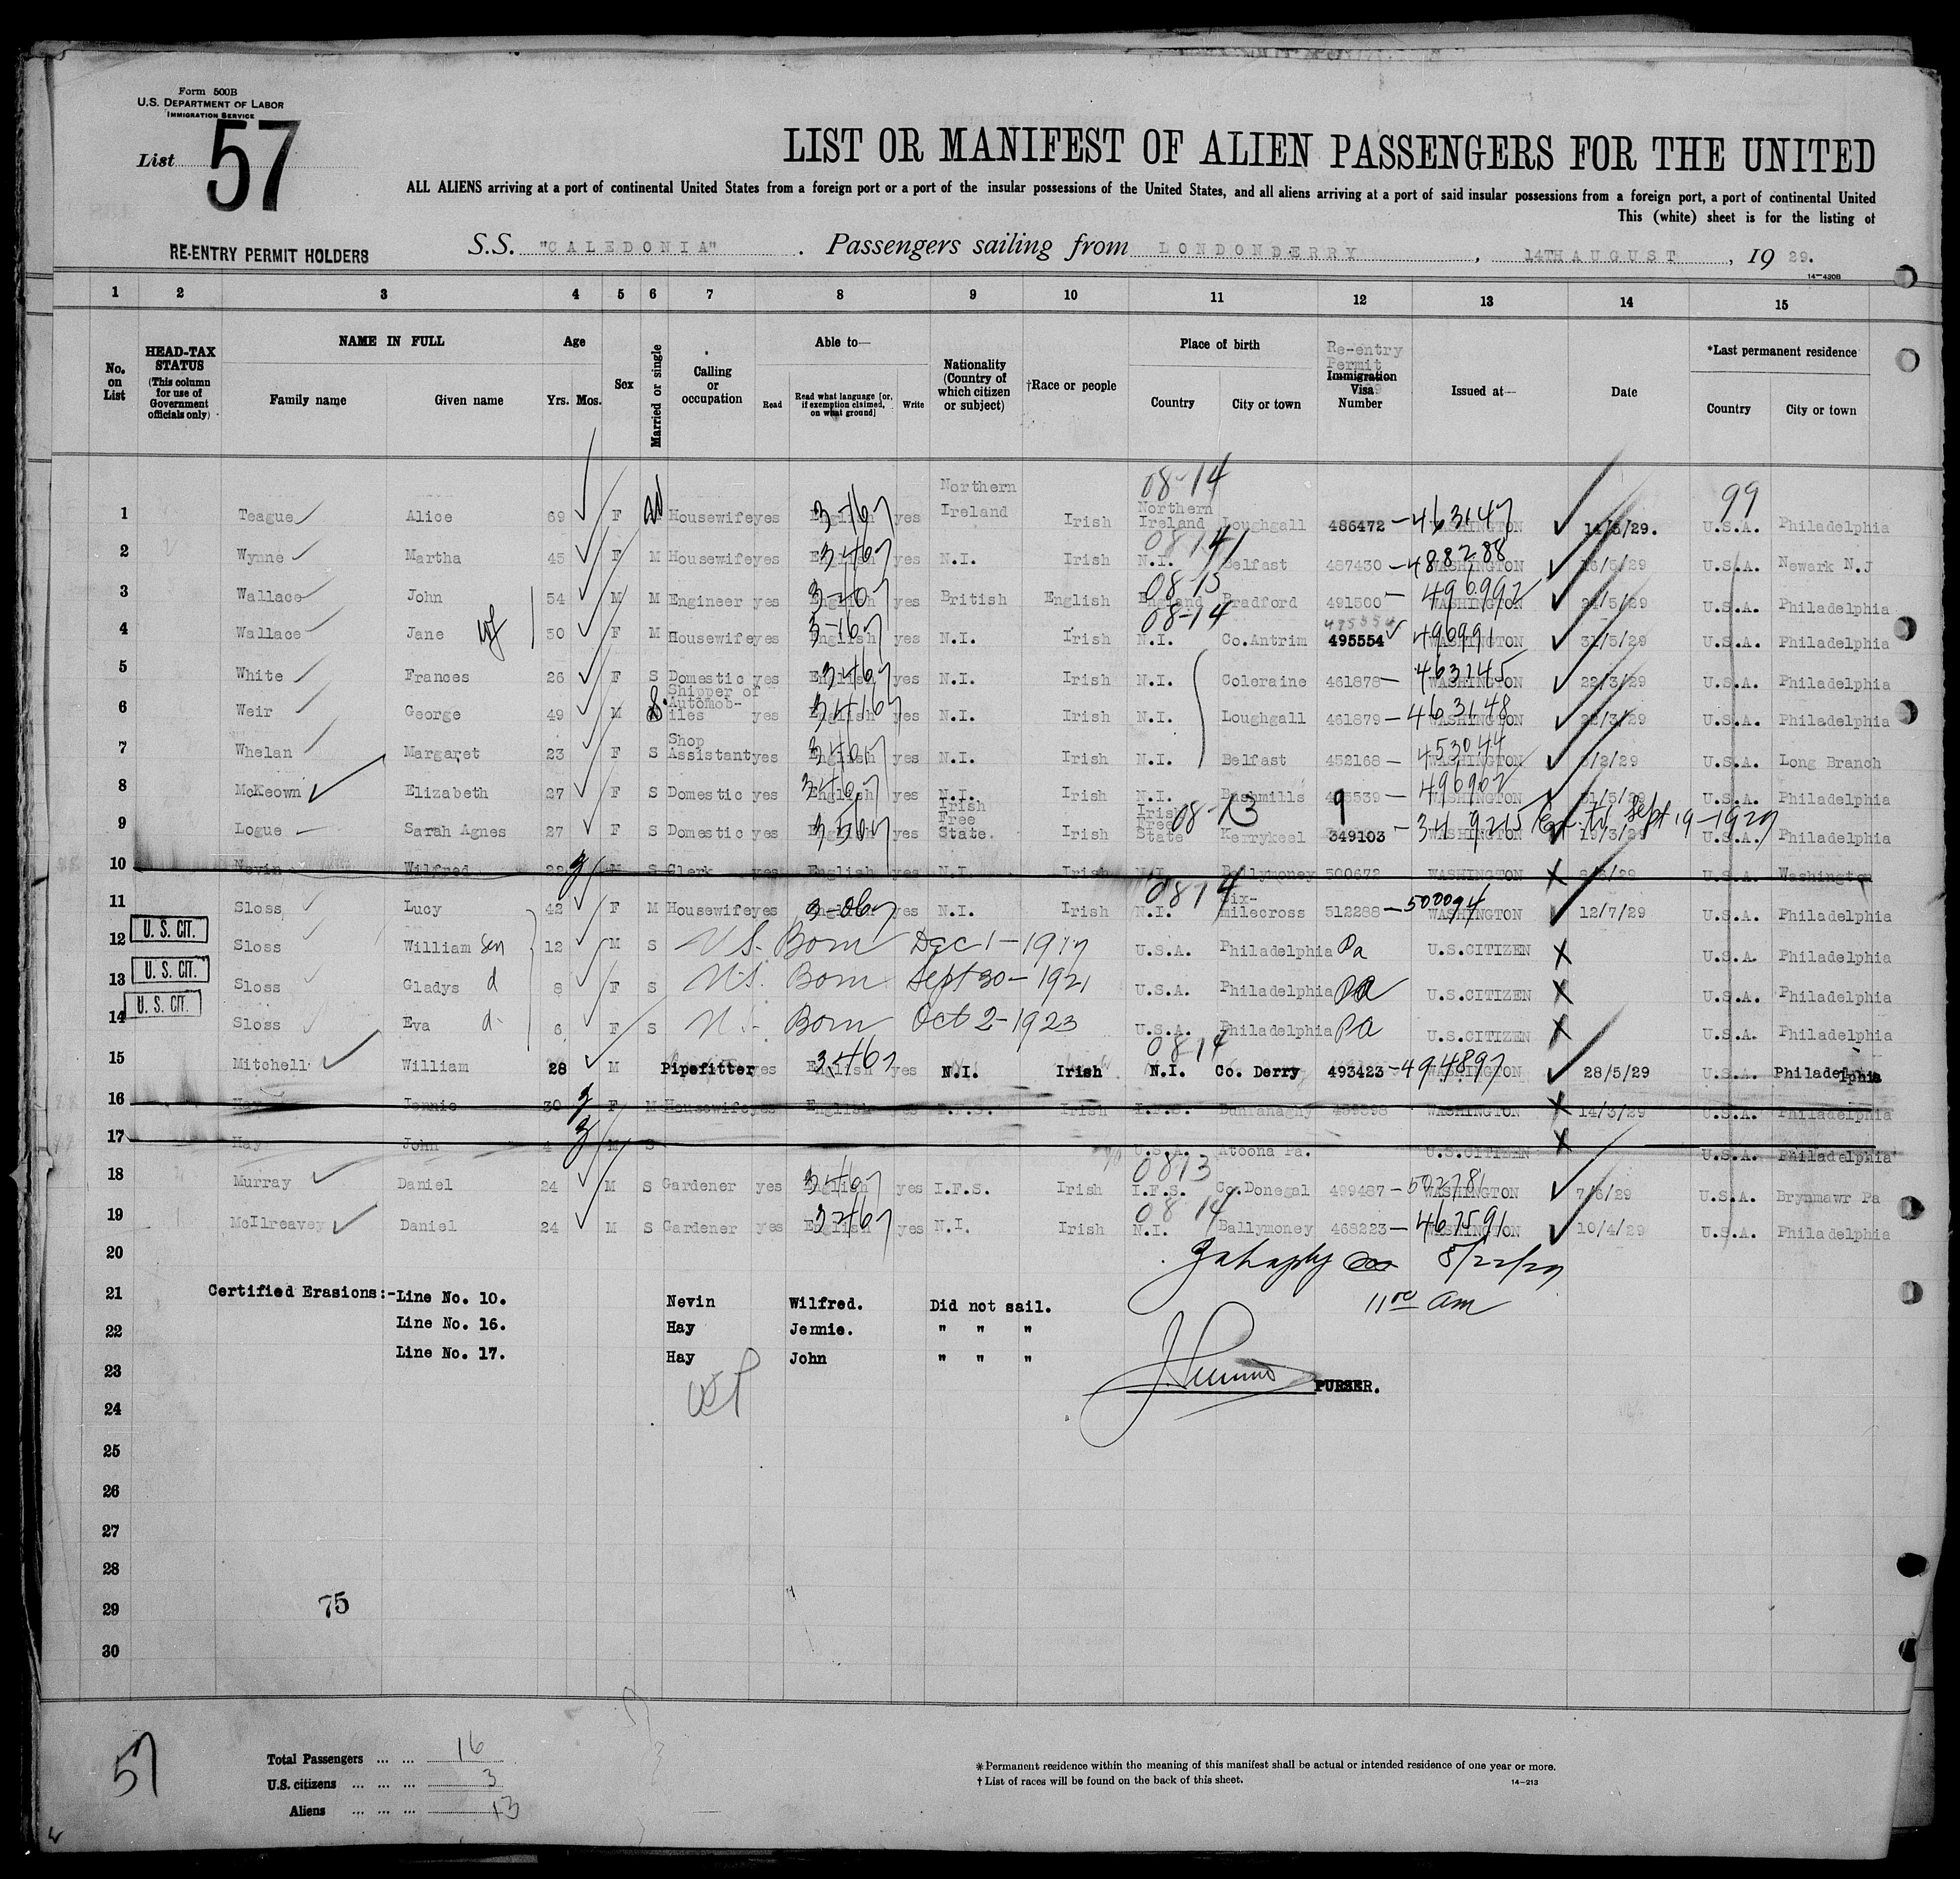 Form 500B
U.S. DEPARTMENT OF LABOR
IMMIGRATION SERVICE
List 57
LIST OR MANIFEST OF ALIEN PASSENGERS FOR THE UNITED
ALL ALIENS arriving at a port of continental United States from a foreign port or a port of the insular possessions of the United States, and all aliens arriving at a port of said insular possessions from a foreign port, a port of continental United
This (white) sheet is for the listing of
RE-ENTRY PERMIT HOLDERS
S.S. "CALEDONIA". Passengers sailing from LONDONDERRY, 14TH AUGUST, 19 29.
14-420B
1 2 3 4 5 6 7 8 9 10 11 12 13 14 15
No. on List
HEAD-TAX STATUS (This column for use of Government officials only)
NAME IN FULL Family name Given name
Age Yrs. Mos.
Sex
Married or single
Calling or occupation
Able to— Read Read what language [or, if exemption claimed, on what ground] Write
Nationality (Country of which citizen or subject)
†Race or people
Place of birth Country City or town
Re-entry Permit Immigration Visa Number
Issued at—
Date
*Last permanent residence Country City or town
08-14 99
1 Teague Alice 69 F Housewife yes English yes Northern Ireland Irish Northern Ireland Loughgall 486472 - 463147 WASHINGTON 14/5/29. U.S.A. Philadelphia
2 Wynne Martha 45 F M Housewife yes English yes N.I. Irish N.I. Belfast 487430 - 488288 WASHINGTON 16/5/29 U.S.A. Newark N.J
3 Wallace John 54 M M Engineer yes English yes British English England Bradford 491500 - 496992 WASHINGTON /5/29 U.S.A. Philadelphia
4 Wallace Jane wf 50 F M Housewife yes English yes N.I. Irish N.I. Co.Antrim 495554 496991 WASHINGTON 31/5/29 U.S.A. Philadelphia
5 White Frances 26 F S Domestic yes English yes N.I. Irish N.I. Coleraine 461878 - 463145 WASHINGTON 22/3/29 U.S.A. Philadelphia
6 Weir George 49 M S. Shipper of Automobiles yes English yes N.I. Irish N.I. Loughgall 461879 - 463148 WASHINGTON 22/3/29 U.S.A. Philadelphia
7 Whelan Margaret 23 F S Shop Assistant yes English yes N.I. Irish N.I. Belfast 452168 - 453044 WASHINGTON /2/29 U.S.A. Long Branch
8 McKeown Elizabeth 27 F S Domestic yes English yes N.I. Irish N.I. Bushmills 495539 - 496902 WASHINGTON 31/5/29 U.S.A. Philadelphia
9 Logue Sarah Agnes 27 F S Domestic yes English yes Irish Free State. Irish Irish Free State 08-13 Kerrykeel 349103 - 349215 WASHINGTON Ex. to Sept 19-1929 19/3/29 U.S.A. Philadelphia
10 Nevin Wilfred 22 M S Clerk yes English yes N.I. Irish N.I. Ballymoney 500672 WASHINGTON U.S.A. Washington
11 Sloss Lucy 42 F M Housewife yes English yes N.I. Irish N.I. Six-milecross 512288 - 500094 WASHINGTON 12/7/29 U.S.A. Philadelphia
U. S. CIT.
12 Sloss William Son 12 M S U.S. Born Dec 1-1917 U.S.A. Philadelphia Pa U.S.CITIZEN X U.S.A. Philadelphia
U. S. CIT.
13 Sloss Gladys d 8 F S U.S. Born Sept 30-1921 U.S.A. Philadelphia Pa U.S.CITIZEN X U.S.A. Philadelphia
U. S. CIT.
14 Sloss Eva d 6 F S U.S. Born Oct 2-1923 U.S.A. Philadelphia Pa U.S.CITIZEN X U.S.A. Philadelphia
15 Mitchell William 28 M Pipefitter yes English yes N.I. Irish N.I. Co. Derry 493423 - 494897 WASHINGTON 28/5/29 U.S.A. Philadelphia
16 Hay Jennie 30 F M Housewife yes English yes I.F.S. Irish I.F.S. WASHINGTON X 14/3/29 U.S.A. Philadelphia
17 Hay John 4 M S U.S.A. Atoona Pa. U.S.CITIZEN X U.S.A. Philadelphia
18 Murray Daniel 24 M S Gardener yes English yes I.F.S. Irish I.F.S. Co.Donegal 499487 - 502781 WASHINGTON 7/6/29 U.S.A. Brynmawr Pa
19 McIlreavey Daniel 24 M S Gardener yes English yes N.I. Irish N.I. Ballymoney 468223 - 467591 WASHINGTON 10/4/29 U.S.A. Philadelphia
20 8/22/29
21 Certified Erasions:-Line No. 10. Nevin Wilfred. Did not sail. 11 00 am
22 Line No. 16. Hay Jennie. " " "
Line No. 17. Hay John " " "
23 PURSER.
24
25
26
27
28
29 75
30
57
Total Passengers ... ... 16
U.S. citizens ... ... ... 3
Aliens ... ... ... 13
*Permanent residence within the meaning of this manifest shall be actual or intended residence of one year or more.
†List of races will be found on the back of this sheet. 14-213